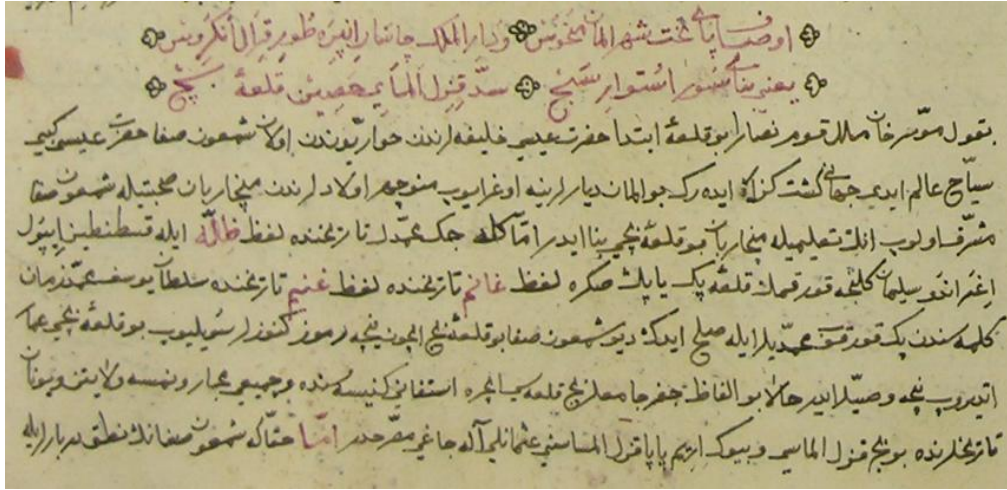 اوصاف پای تخت شهر المان منحوس و دار الملک چاسار انپیره طور قرال انکروس
یعنی بنای سور استوار سنج سد قزل المای حصین قلعۀ بچ
بقول مورخان ملل قوم نصارا بو قلعۀ ابتدا حضرت عیسی خلیفه لرندن حواریوندن اولان شمعون صفا حضرت عیسی کبی
سیاح عالم ایدی جهانی کشت کذار ایده رک بو المان دیارلرینه اوغرایوب منوچهر اولادلرندن منچار بان صحبتیله شمعون صفا
مشرف اولوب انک تعلیمیله منچار بان بو قلعۀ بچی بنا ایدر اما کله جک محمدک تاریخنده لفظ ظالّه ایله قسطنطین ایپول
سلیمان کلیجه قورقمک قلعه پک یاپک صکره لفظ غانم تاریخنده لفظ غنیم تاریخنده سلطان یوسف محمد زمان
کلمه سندن پک قورقک محمدیلر ایله صلح ایدک دیو شمعون صفا بو قلعۀ بچ ایچون نیچه رموز کنوزلر سویلیوب بو قلعۀ بچی عما
اتدروب نیچه وصیتلر ایدر حالا بو الفاظ جفر جامعلر بچ قلعه سی ایچره استفانی کنیسه سنده و جمیعی مجار و نمسه و لاتین و یونان
تاریخلرنده بو بچ قزل الماسی و بیوک اریم پاپا قزل الماسنی عثمانلی آله جاغی مقرردر اما حتی که شمعون صفانک نطق دربارلریله